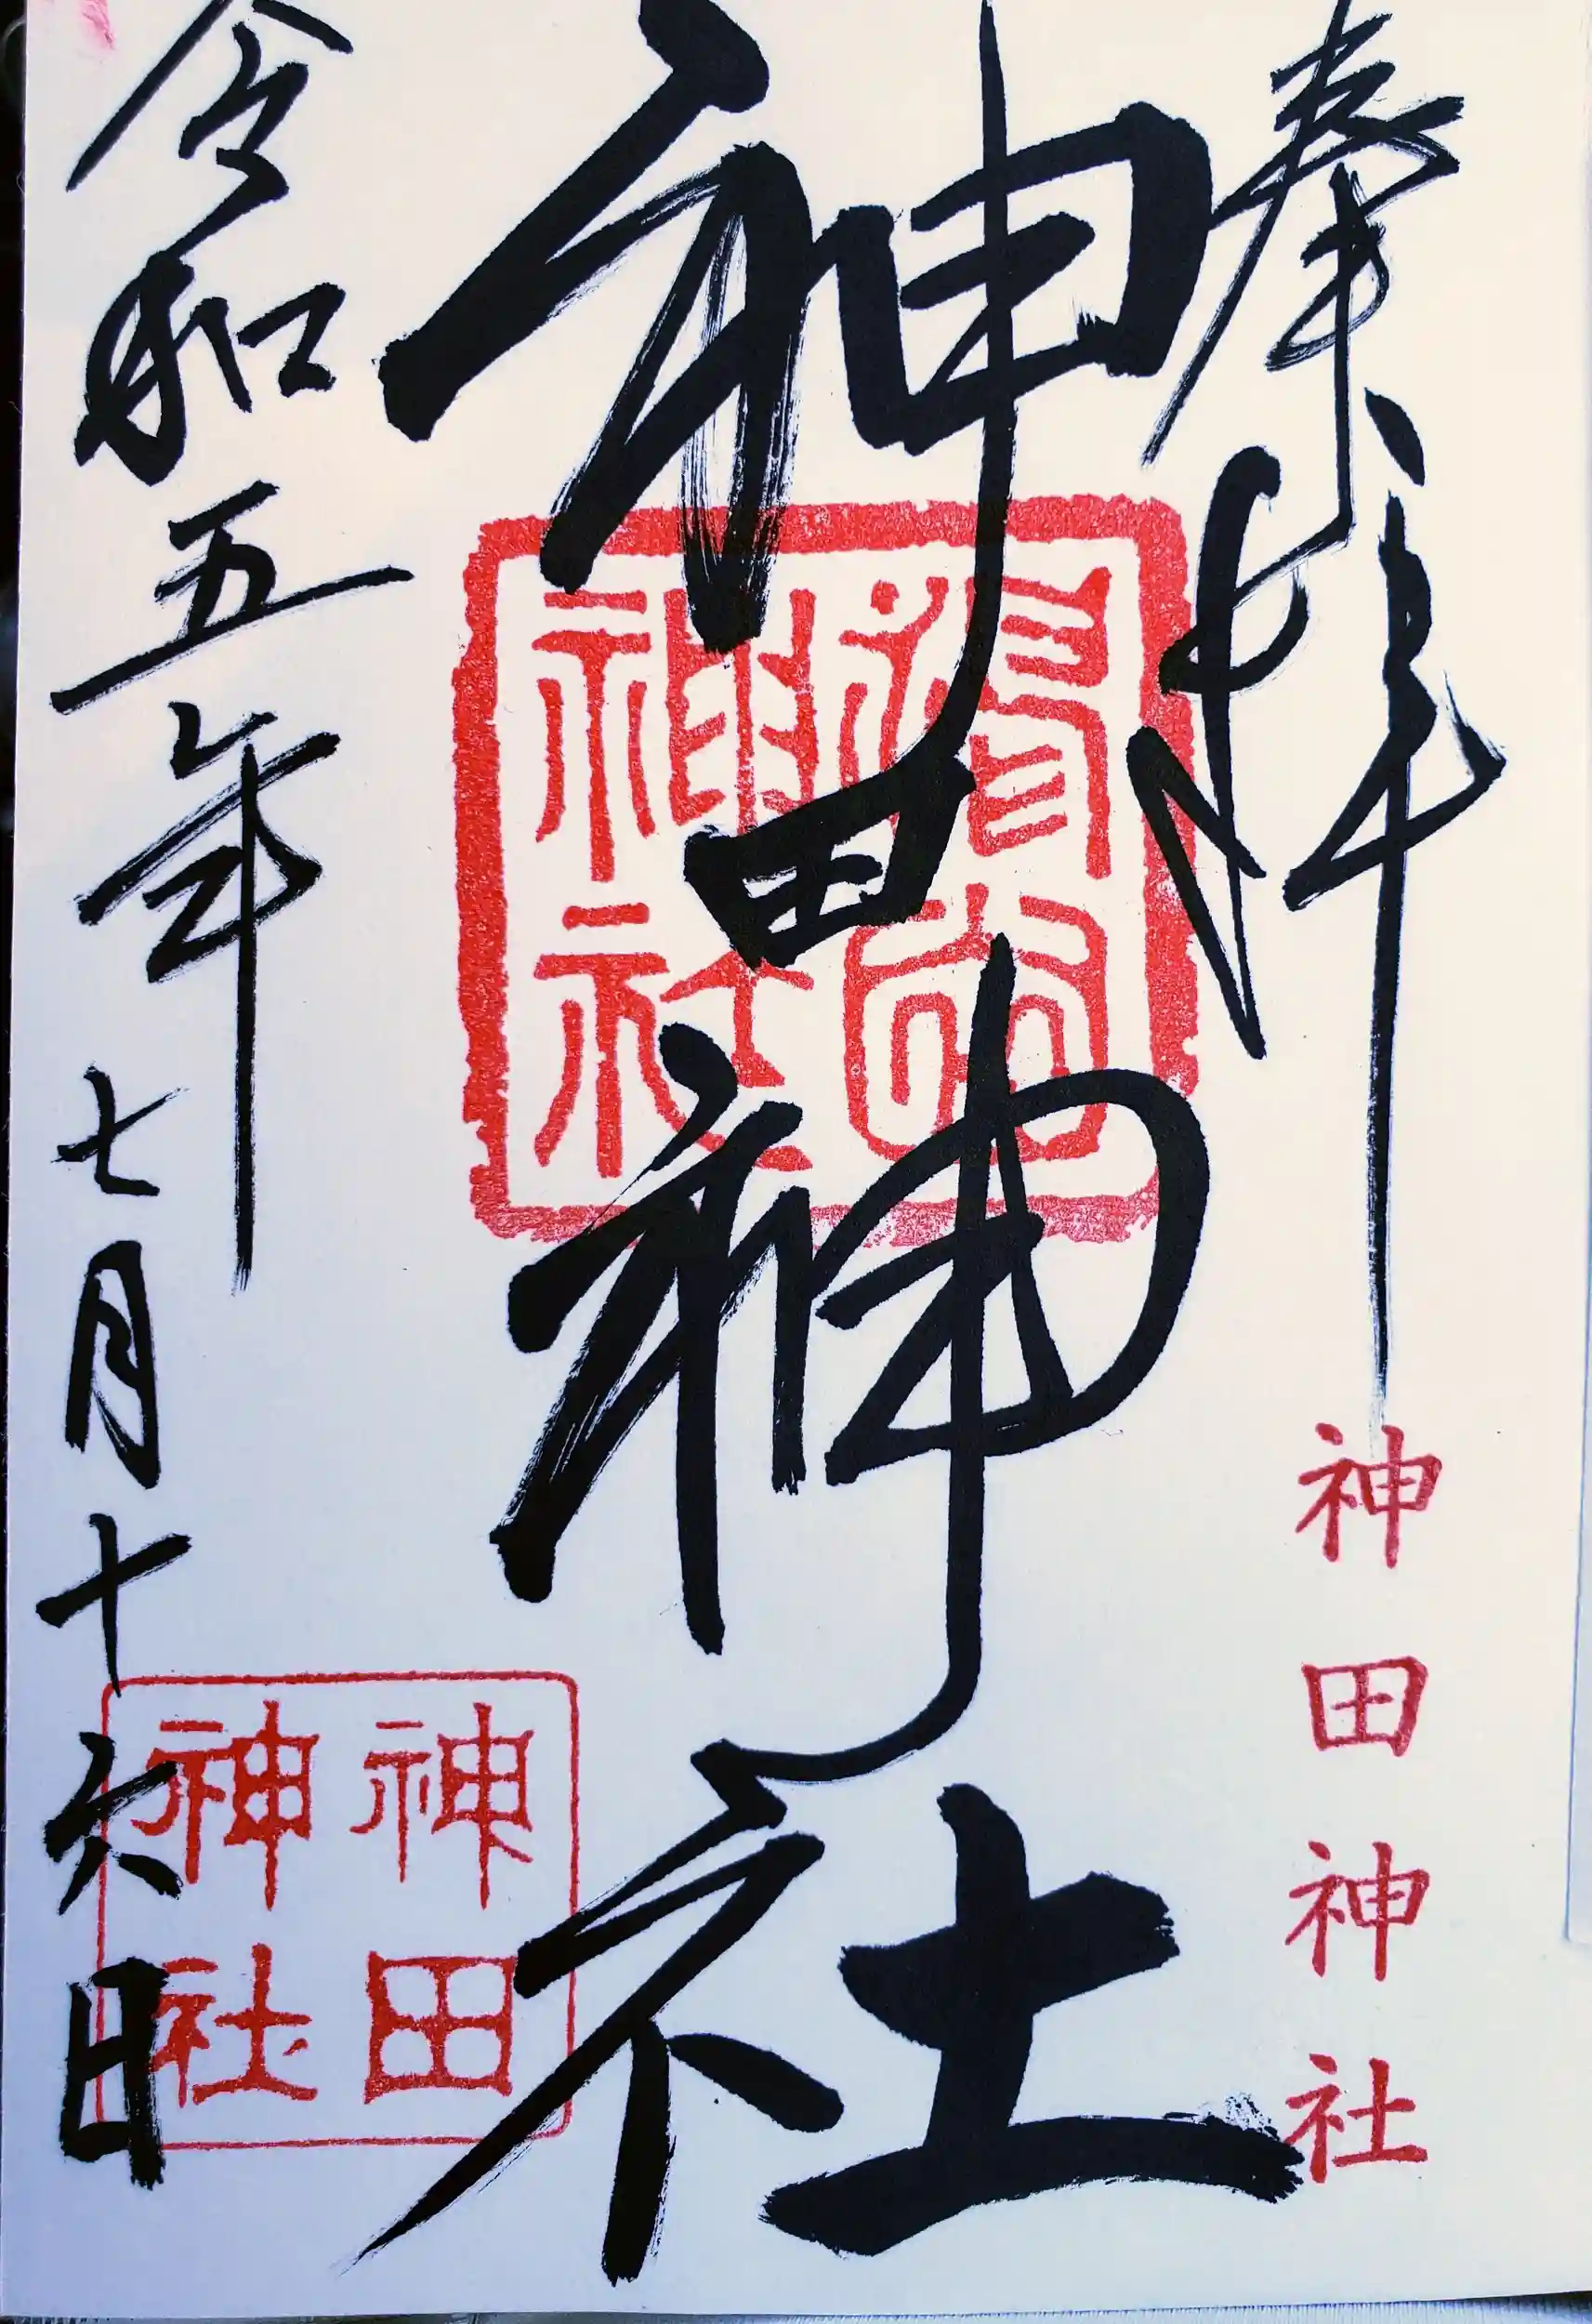 奉拝
神田神社
神田神社
神社
令和五年七月十六日
神田
神社